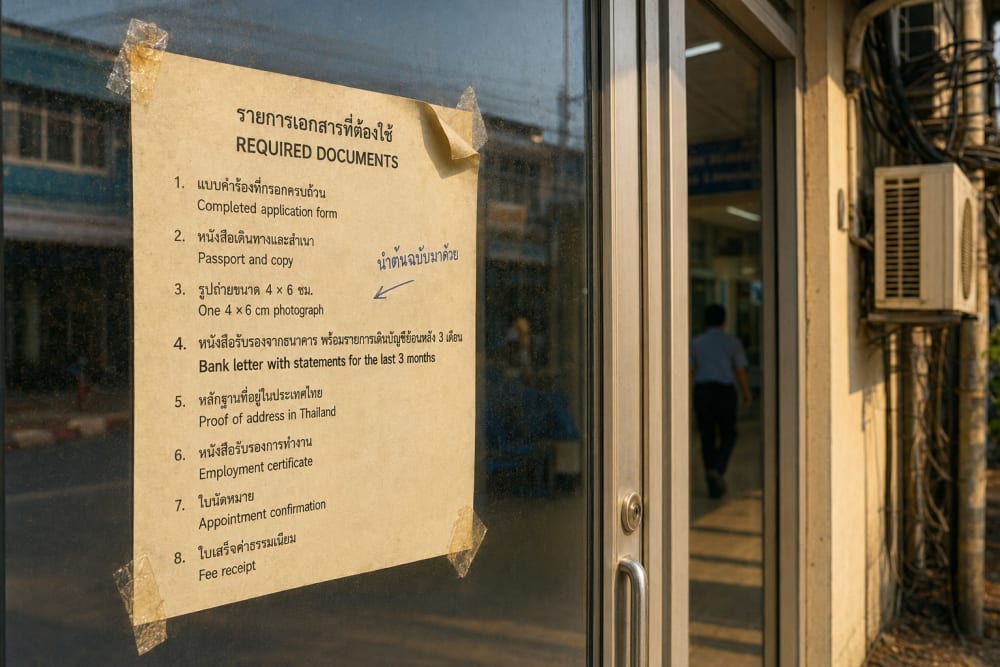 รายการเอกสารที่ต้องใช้
REQUIRED DOCUMENTS
1. แบบคำร้องที่กรอกครบถ้วน
Completed application form
2. หนังสือเดินทางและสำเนา
Passport and copy
นำต้นฉบับมาด้วย
3. รูปถ่ายขนาด 4 × 6 ซม.
One 4 × 6 cm photograph
4. หนังสือรับรองจากธนาคาร พร้อมรายการเดินบัญชีย้อนหลัง 3 เดือน
Bank letter with statements for the last 3 months
5. หลักฐานที่อยู่ในประเทศไทย
Proof of address in Thailand
6. หนังสือรับรองการทำงาน
Employment certificate
7. ใบนัดหมาย
Appointment confirmation
8. ใบเสร็จค่าธรรมเนียม
Fee receipt